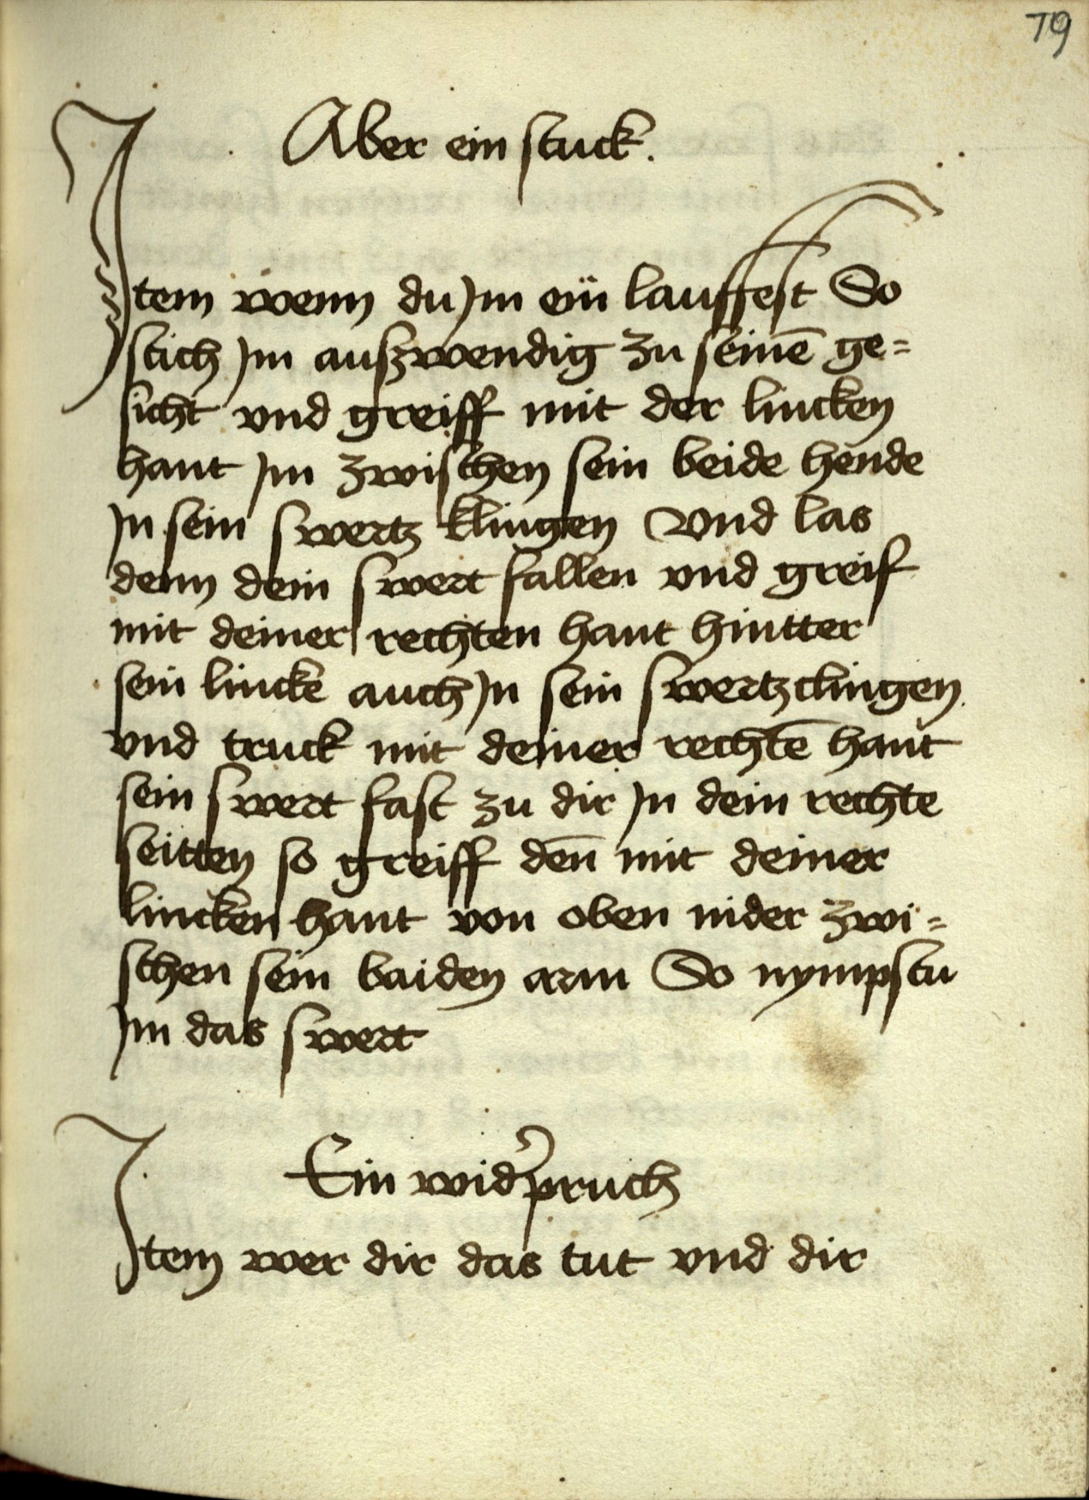 79
Aber ein stuck.
Item wenn du Jm ein lauffest So
stich Jm auszwendig zu seinē ge=
sicht vnd greiff mit der lincken
hant Jm zwischen sein beide hende
Jn sein swertz klingen Vnd las
denn dein swert fallen vnd greif
mit deiner rechten hant hintter
sein lincke auch Jn sein swertzclingen
vnd truck mit deiner rechtē hant
sein swert fast zu dir Jn dein rechte
seitten so greiff den̄ mit deiner
lincken hant von oben nider zwi=
schen sein baiden arm So nympstu
Jm das swert
Ein wid̉pruch
Item wer dir das tut vnd dir